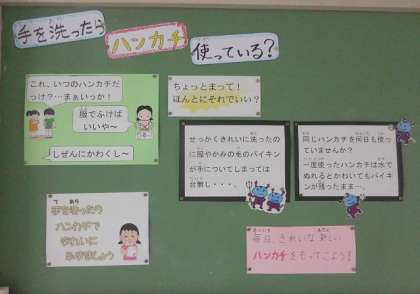 手を洗ったら
ハンカチ
使っている？
これ、いつのハンカチだ
っけ？…まぁいっか！
服でふけば
いいや～
しぜんにかわくし～
ちょっとまって！
ほんとにそれでいい？
せっかくきれいに洗ったの
に服やかみの毛のバイキン
が手についてしまっては
台無し・・・。
同じハンカチを何日も使っ
ていませんか？
一度使ったハンカチは水で
ぬれるとかわいてもバイキ
ンが残ったまま…。
手を洗ったら
ハンカチで
きれいに
ふきましょう
毎日、きれいな 新しい
ハンカチをもってこよう！